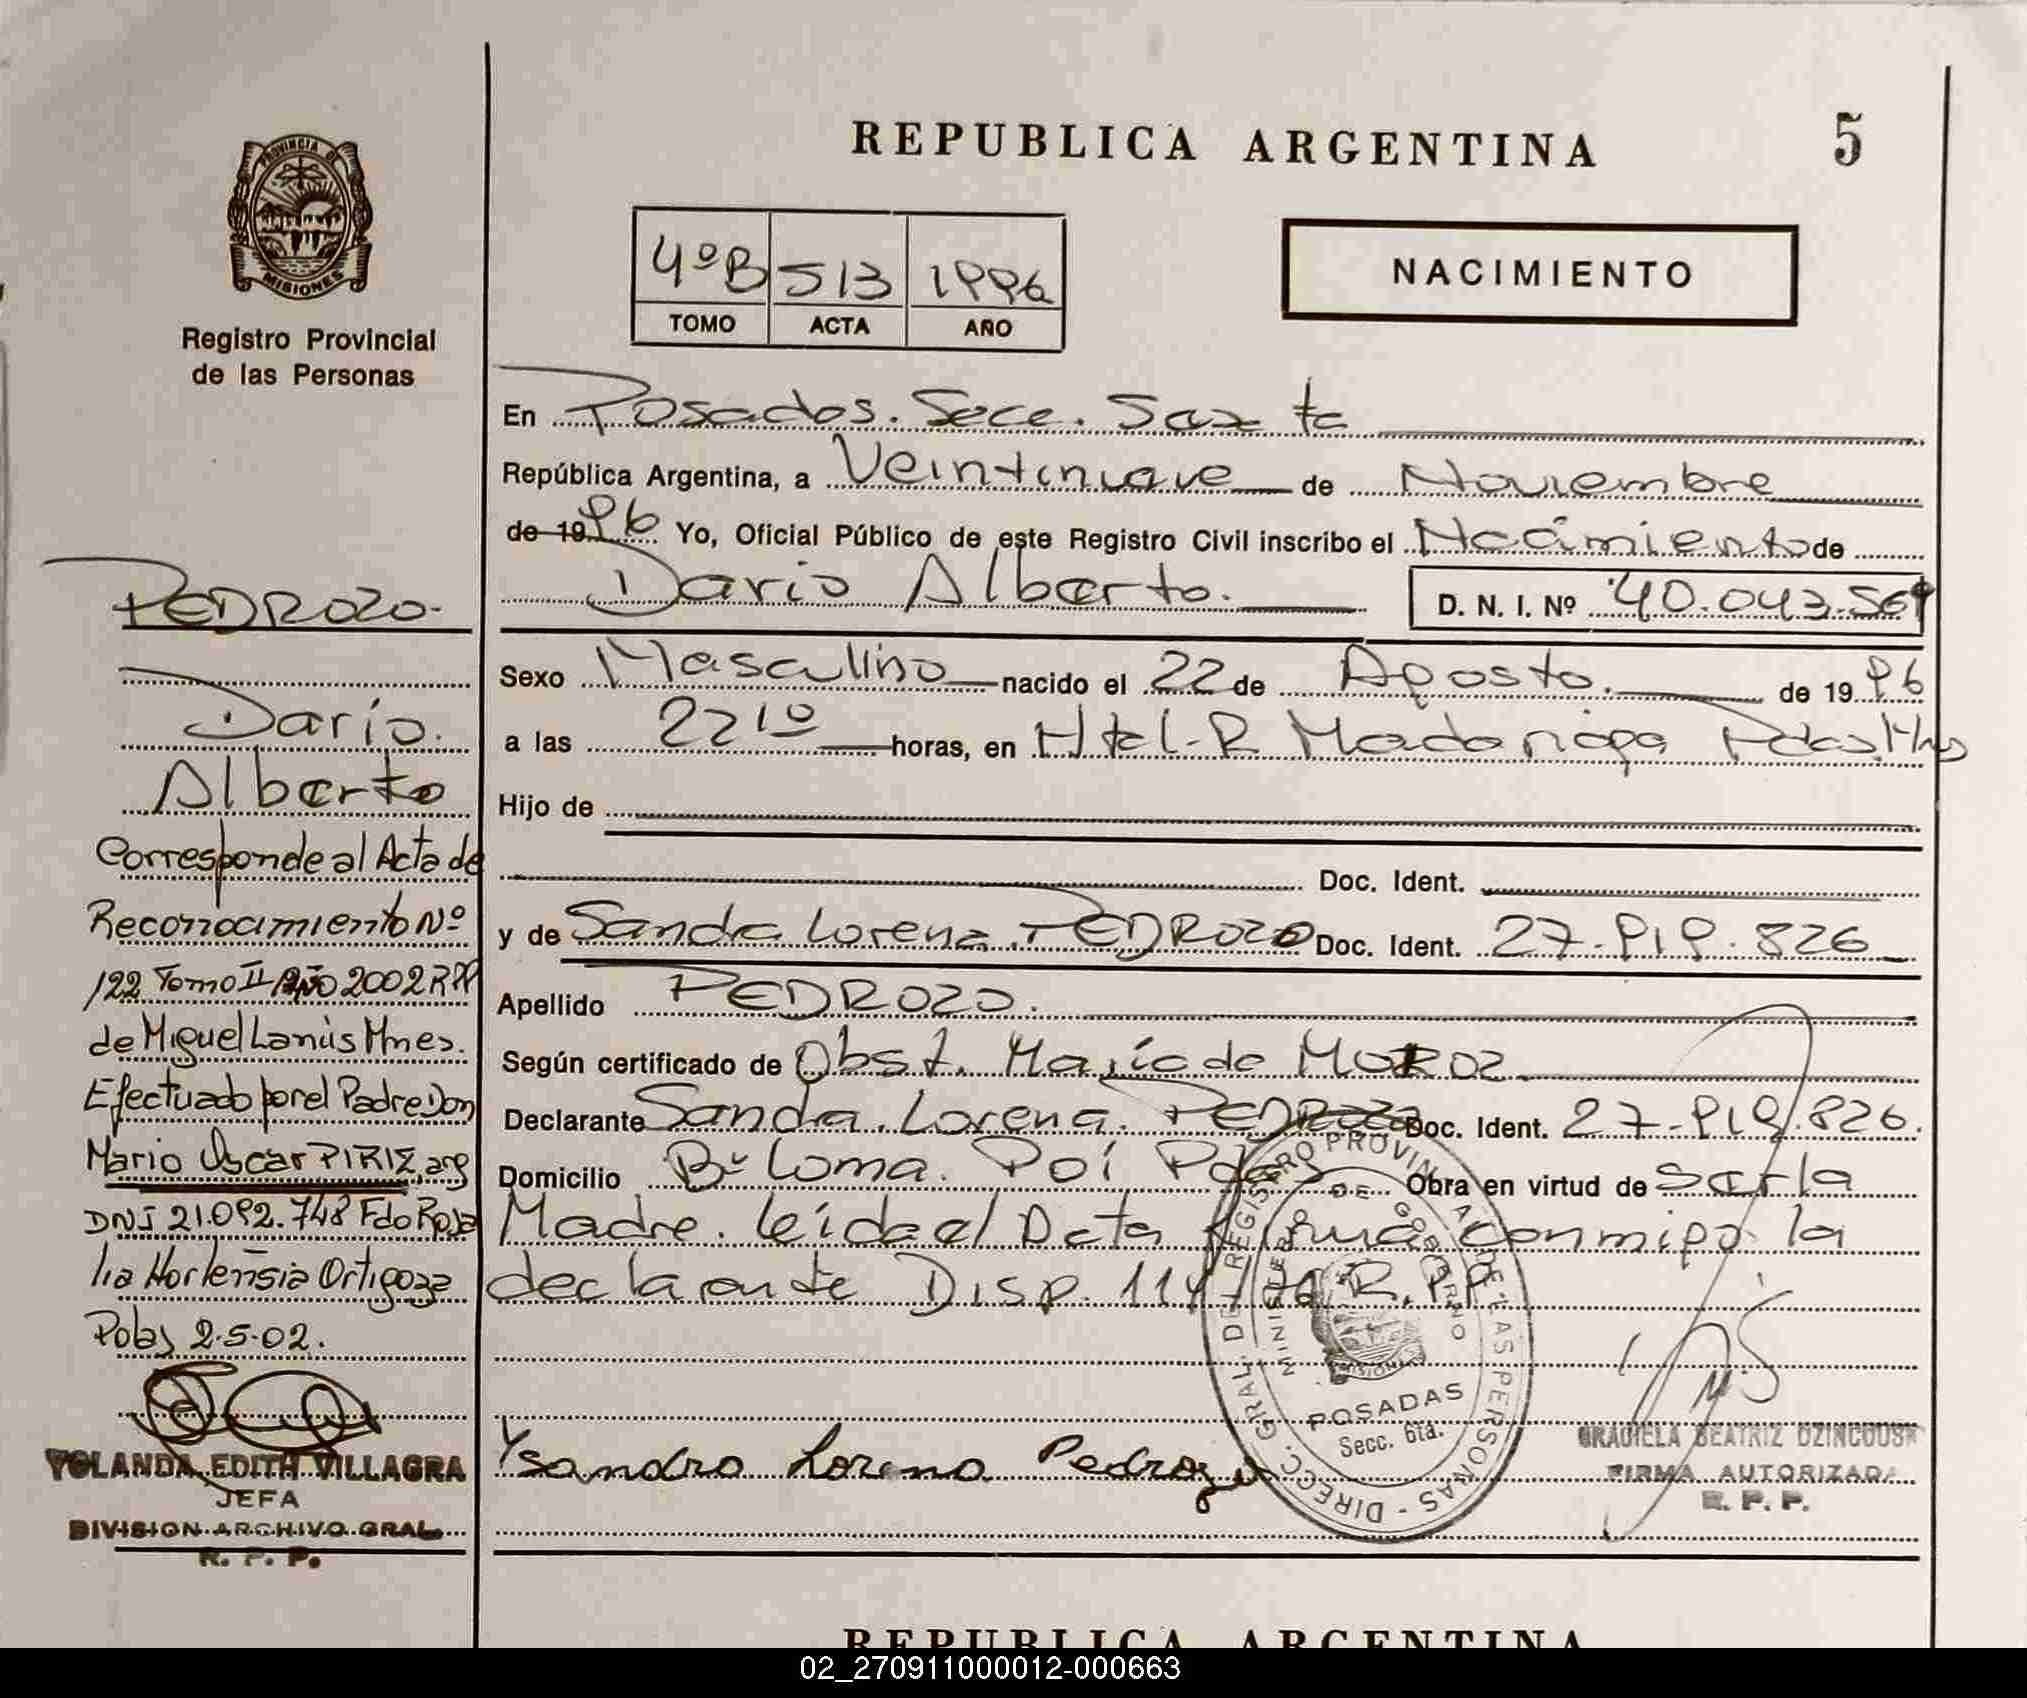 REPUBLICA ARGENTINA
5
PROVINCIA DE
MISIONES
Registro Provincial
de las Personas
4ºB 513 1996
TOMO ACTA AÑO
NACIMIENTO
En Posadas. Secc. Sexta
República Argentina, a Veintinueve de Noviembre
de 1996 Yo, Oficial Público de este Registro Civil inscribo el Nacimiento de
Dario Alberto. D. N. I. Nº 40.043.569
Sexo Masculino nacido el 22 de Agosto. de 1996
a las 22 10 horas, en Htal. R Madariaga Pdas Mnes
Hijo de
Doc. Ident.
y de Sandra Lorena PEDROZO Doc. Ident. 27.919.826
Apellido PEDROZO.
Según certificado de Obst. María de MOROZ
Declarante Sandra Lorena. PEDROZO Doc. Ident. 27.919.826.
Domicilio Bº Loma Poí Pdas Obra en virtud de ser la
Madre. leída el Acta firma conmigo la
declarante Disp. 114/76 R.P.P.
PEDROZO.
Darío.
Alberto
Corresponde al Acta de
Reconocimiento Nº
122 Tomo II Año 2002 RPP
de Miguel Lanús Mnes.
Efectuado por el Padre Don
Mario Oscar PIRIZ, arg
DNI 21.092.748 Fdo Rosa
lia Hortensia Ortigoza
Pdas 2-5-02.
YOLANDA EDITH VILLAGRA
JEFA
DIVISION ARCHIVO GRAL.
R. P. P.
Sandra Lorena Pedrozo
DIRECC. GRAL. DEL REGISTRO PROVINCIAL DE LAS PERSONAS
MINISTERIO DE GOBIERNO
MISIONES
POSADAS
Secc. 6ta.
GRACIELA BEATRIZ DZINCOUSK
FIRMA AUTORIZADA
R. P. P.
REPUBLICA ARGENTINA
02_270911000012-000663